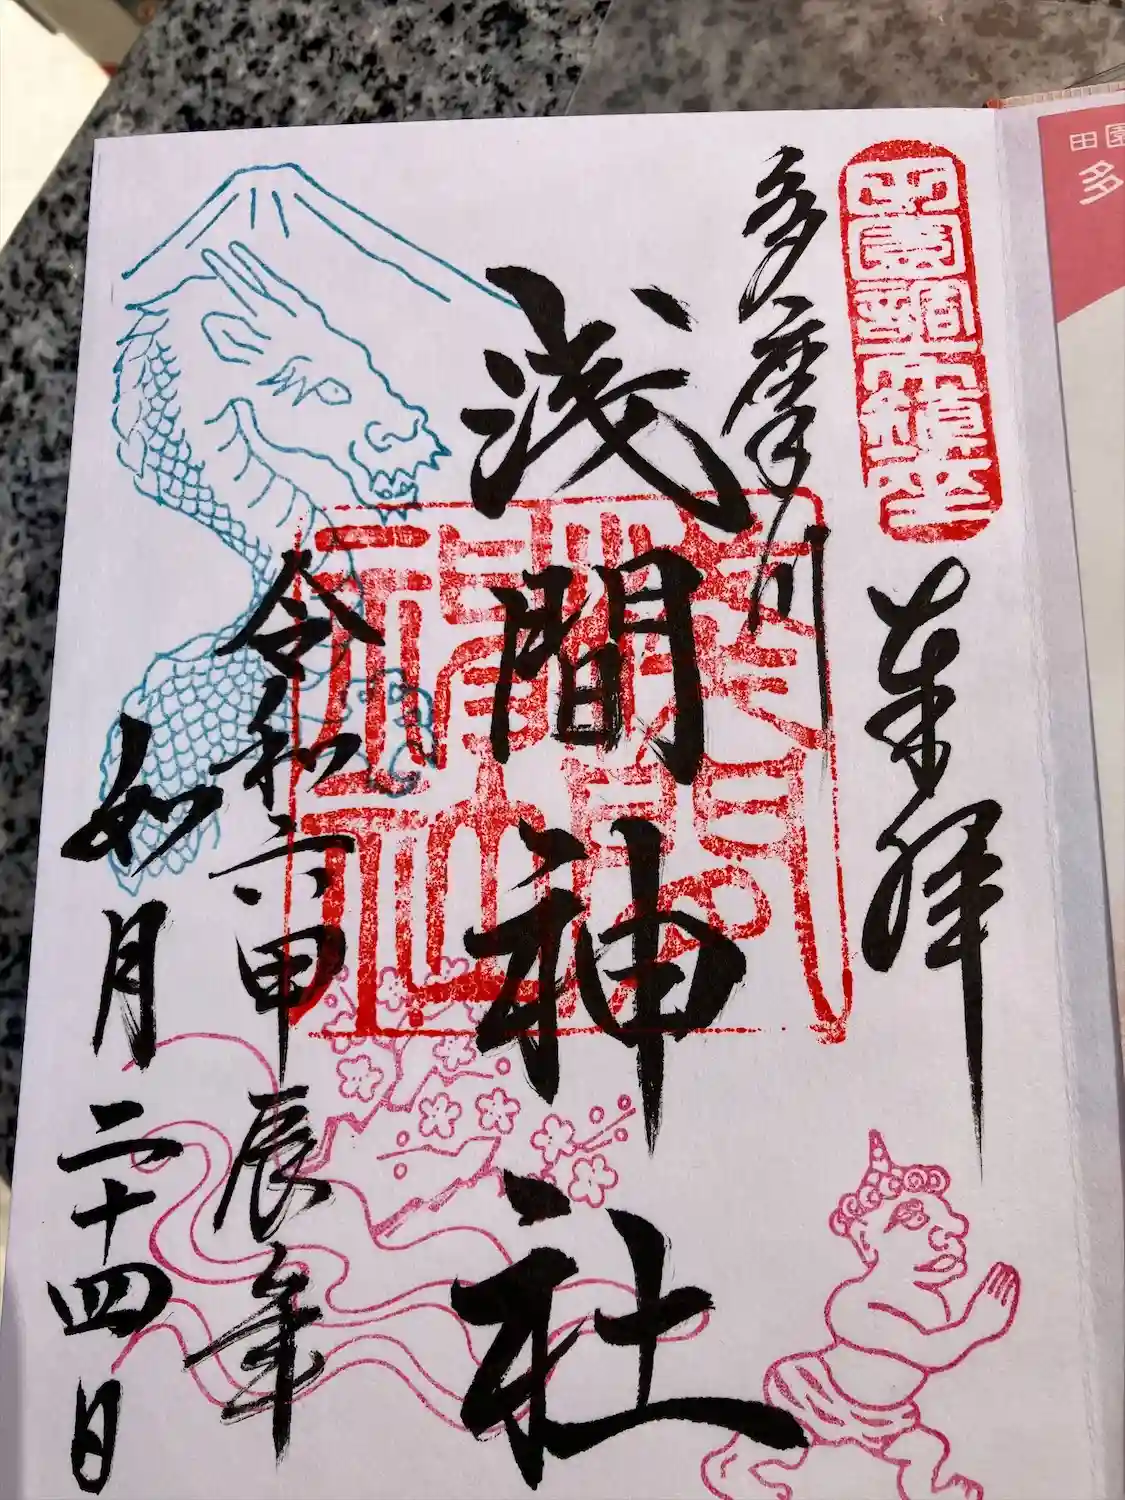 田園調布鎮座
奉拝
多摩川
浅間神社
令和六甲辰年
如月二十四日
田園
多